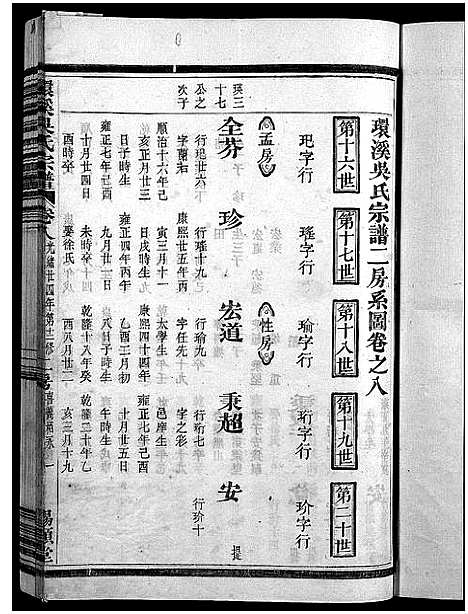 環溪吳氏宗譜二房系圖卷之八
第十六世
第十七世
第十八世
第十九世
第二十世
玘字行
瑤字行
瑜字行
珩字行
玠字行
孟房
性房
瑛三
十七
公之
次子
全芥
珍
宏道
秉超
安
行玘廿六
字蘭若
順治十六年己
亥正月廿三
日子時生
雍正七年己酉
十月廿四日
酉時卒
行瑤十九
康熙廿五年丙
寅三月十一
日戌時生
雍正四年丙午
九月廿一日
未時卒
娶徐氏
行瑜九
字任先
太學生
康熙四十四年
乙酉三月初
四日午時生
乾隆十八年癸
酉八月廿二
行珩七
字之彩
邑庠生
雍正七年己酉
十月廿五日
午時生
乾隆三十年乙
亥三月十九
行玠十
環溪吳氏宗譜
卷八
光緒廿四年第十二修
二房
一